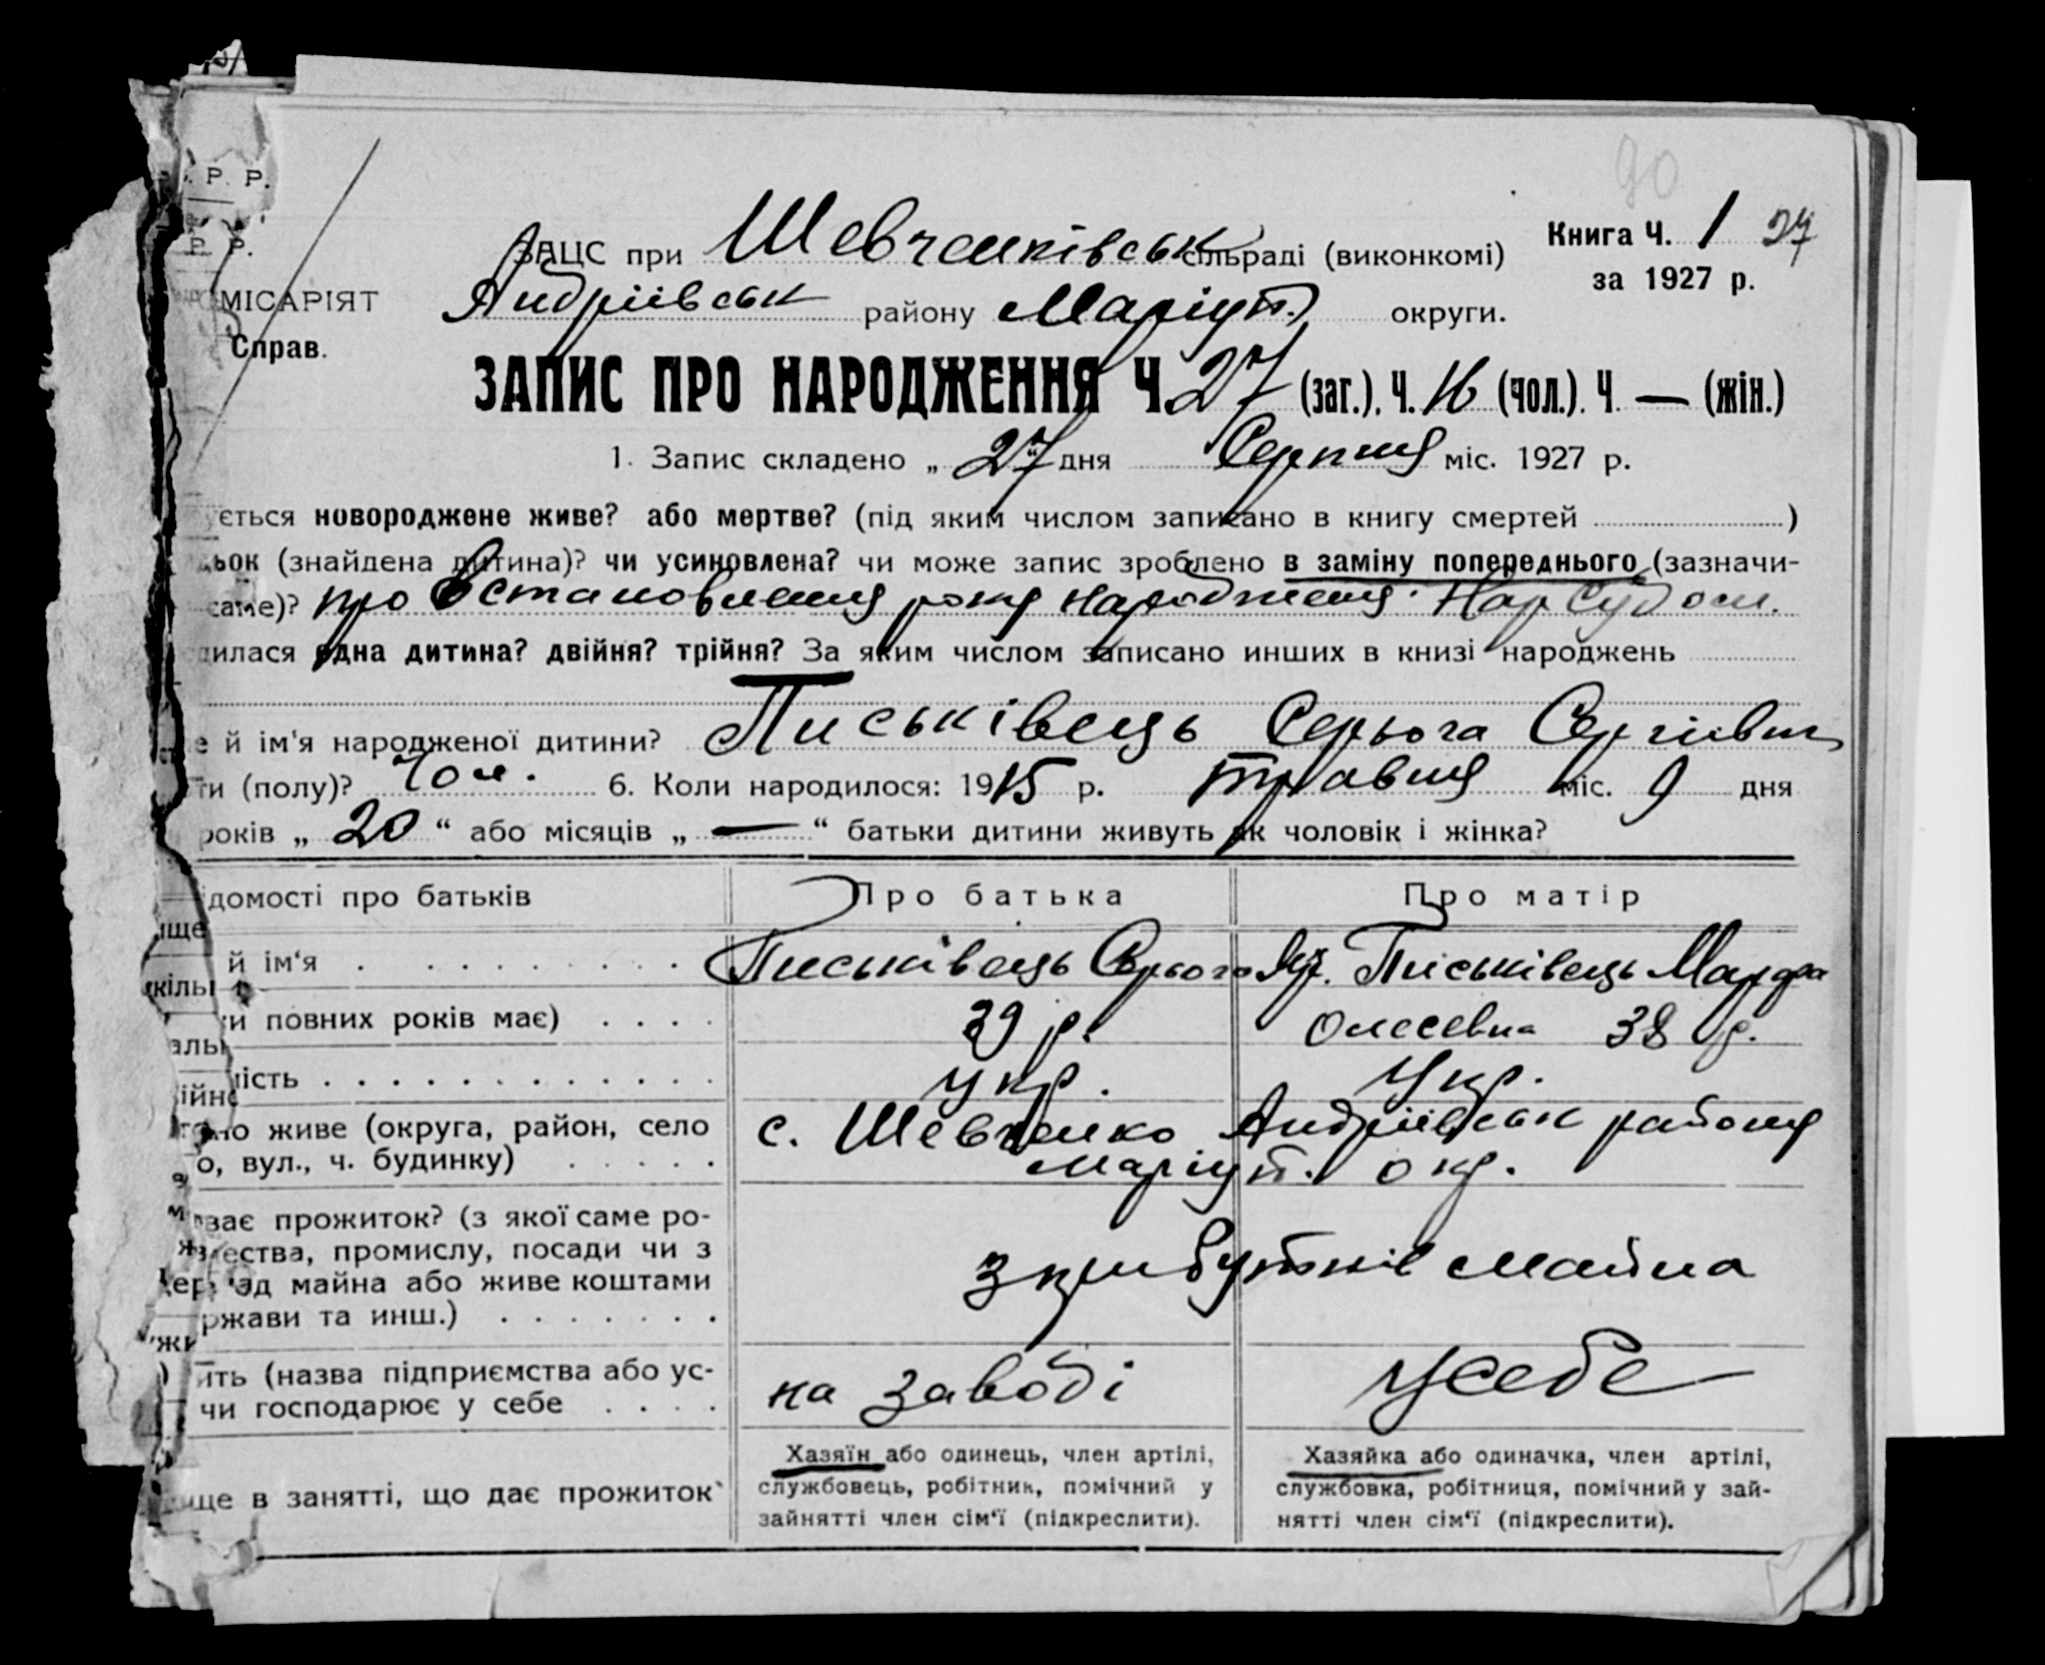 90
Р. Р.
Книга Ч. 1 27
ЗАЦС при Шевченківськ сільраді (виконкомі)
Р. Р.
за 1927 р.
МІСАРІЯТ
Андріївськ району Маріуп. округи.
Справ.
ЗАПИС ПРО НАРОДЖЕННЯ Ч. 27 (заг.). Ч. 16 (чол.). Ч. — (жін.)
1. Запис складено „27“ дня Серпня міс. 1927 р.
ується новороджене живе? або мертве? (під яким числом записано в книгу смертей )
ьок (знайдена дитина)? чи усиновлена? чи може запис зроблено в заміну попереднього (зазначи-
саме)? про встановлення року народження. Нар Судом.
дилася одна дитина? двійня? трійня? За яким числом записано инших в книзі народжень
е й ім'я народженої дитини? Письківець Серьога Сергіївич
ти (полу)? чол. 6. Коли народилося: 1915 р. травня міс. 9 дня
років „20“ або місяців „—“ батьки дитини живуть як чоловік і жінка?
домості про батьків Про батька Про матір
й ім'я Письківець Серьога Яр. Письківець Марфа
и повних років має) 39 р. Олесевна 38 р.
ність укр. Укр.
но живе (округа, район, село с. Шевченко Андріївськ району
о, вул., ч. будинку) Маріуп. окр.
має прожиток? (з якої саме ро-
ества, промислу, посади чи з
од майна або живе коштами з прибутків майна
ржави та инш.)
ить (назва підприємства або ус- на заводі усебе
чи господарює у себе
Хазяїн або одинець, член артілі, Хазяйка або одиначка, член артілі,
ище в занятті, що дає прожиток службовець, робітник, помічний у службовка, робітниця, помічний у зай-
зайнятті член сім'ї (підкреслити). нятті член сім'ї (підкреслити).